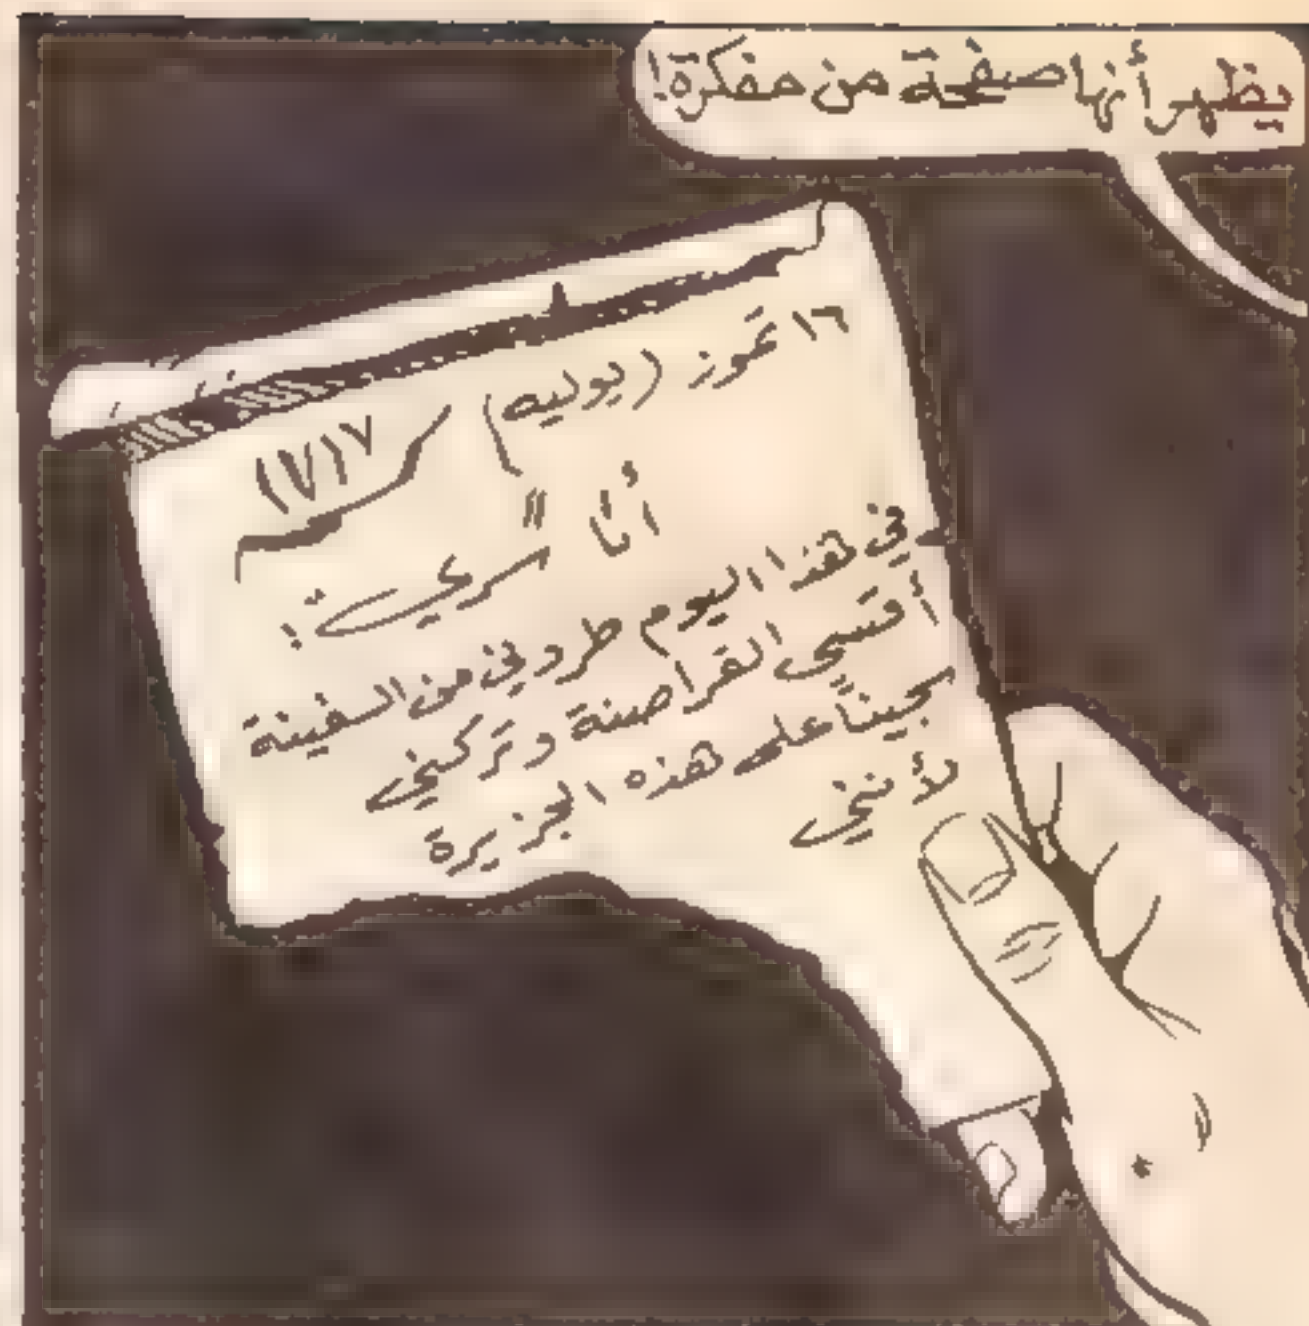 يظهر أنها صفحة من مفكرة!
١٦ تموز (يوليه) ١٧١٧
أنا "سري":
في هذا اليوم طردني من السفينة
أقسى القراصنة وتركني
سجيناً على هذه الجزيرة
لأنني